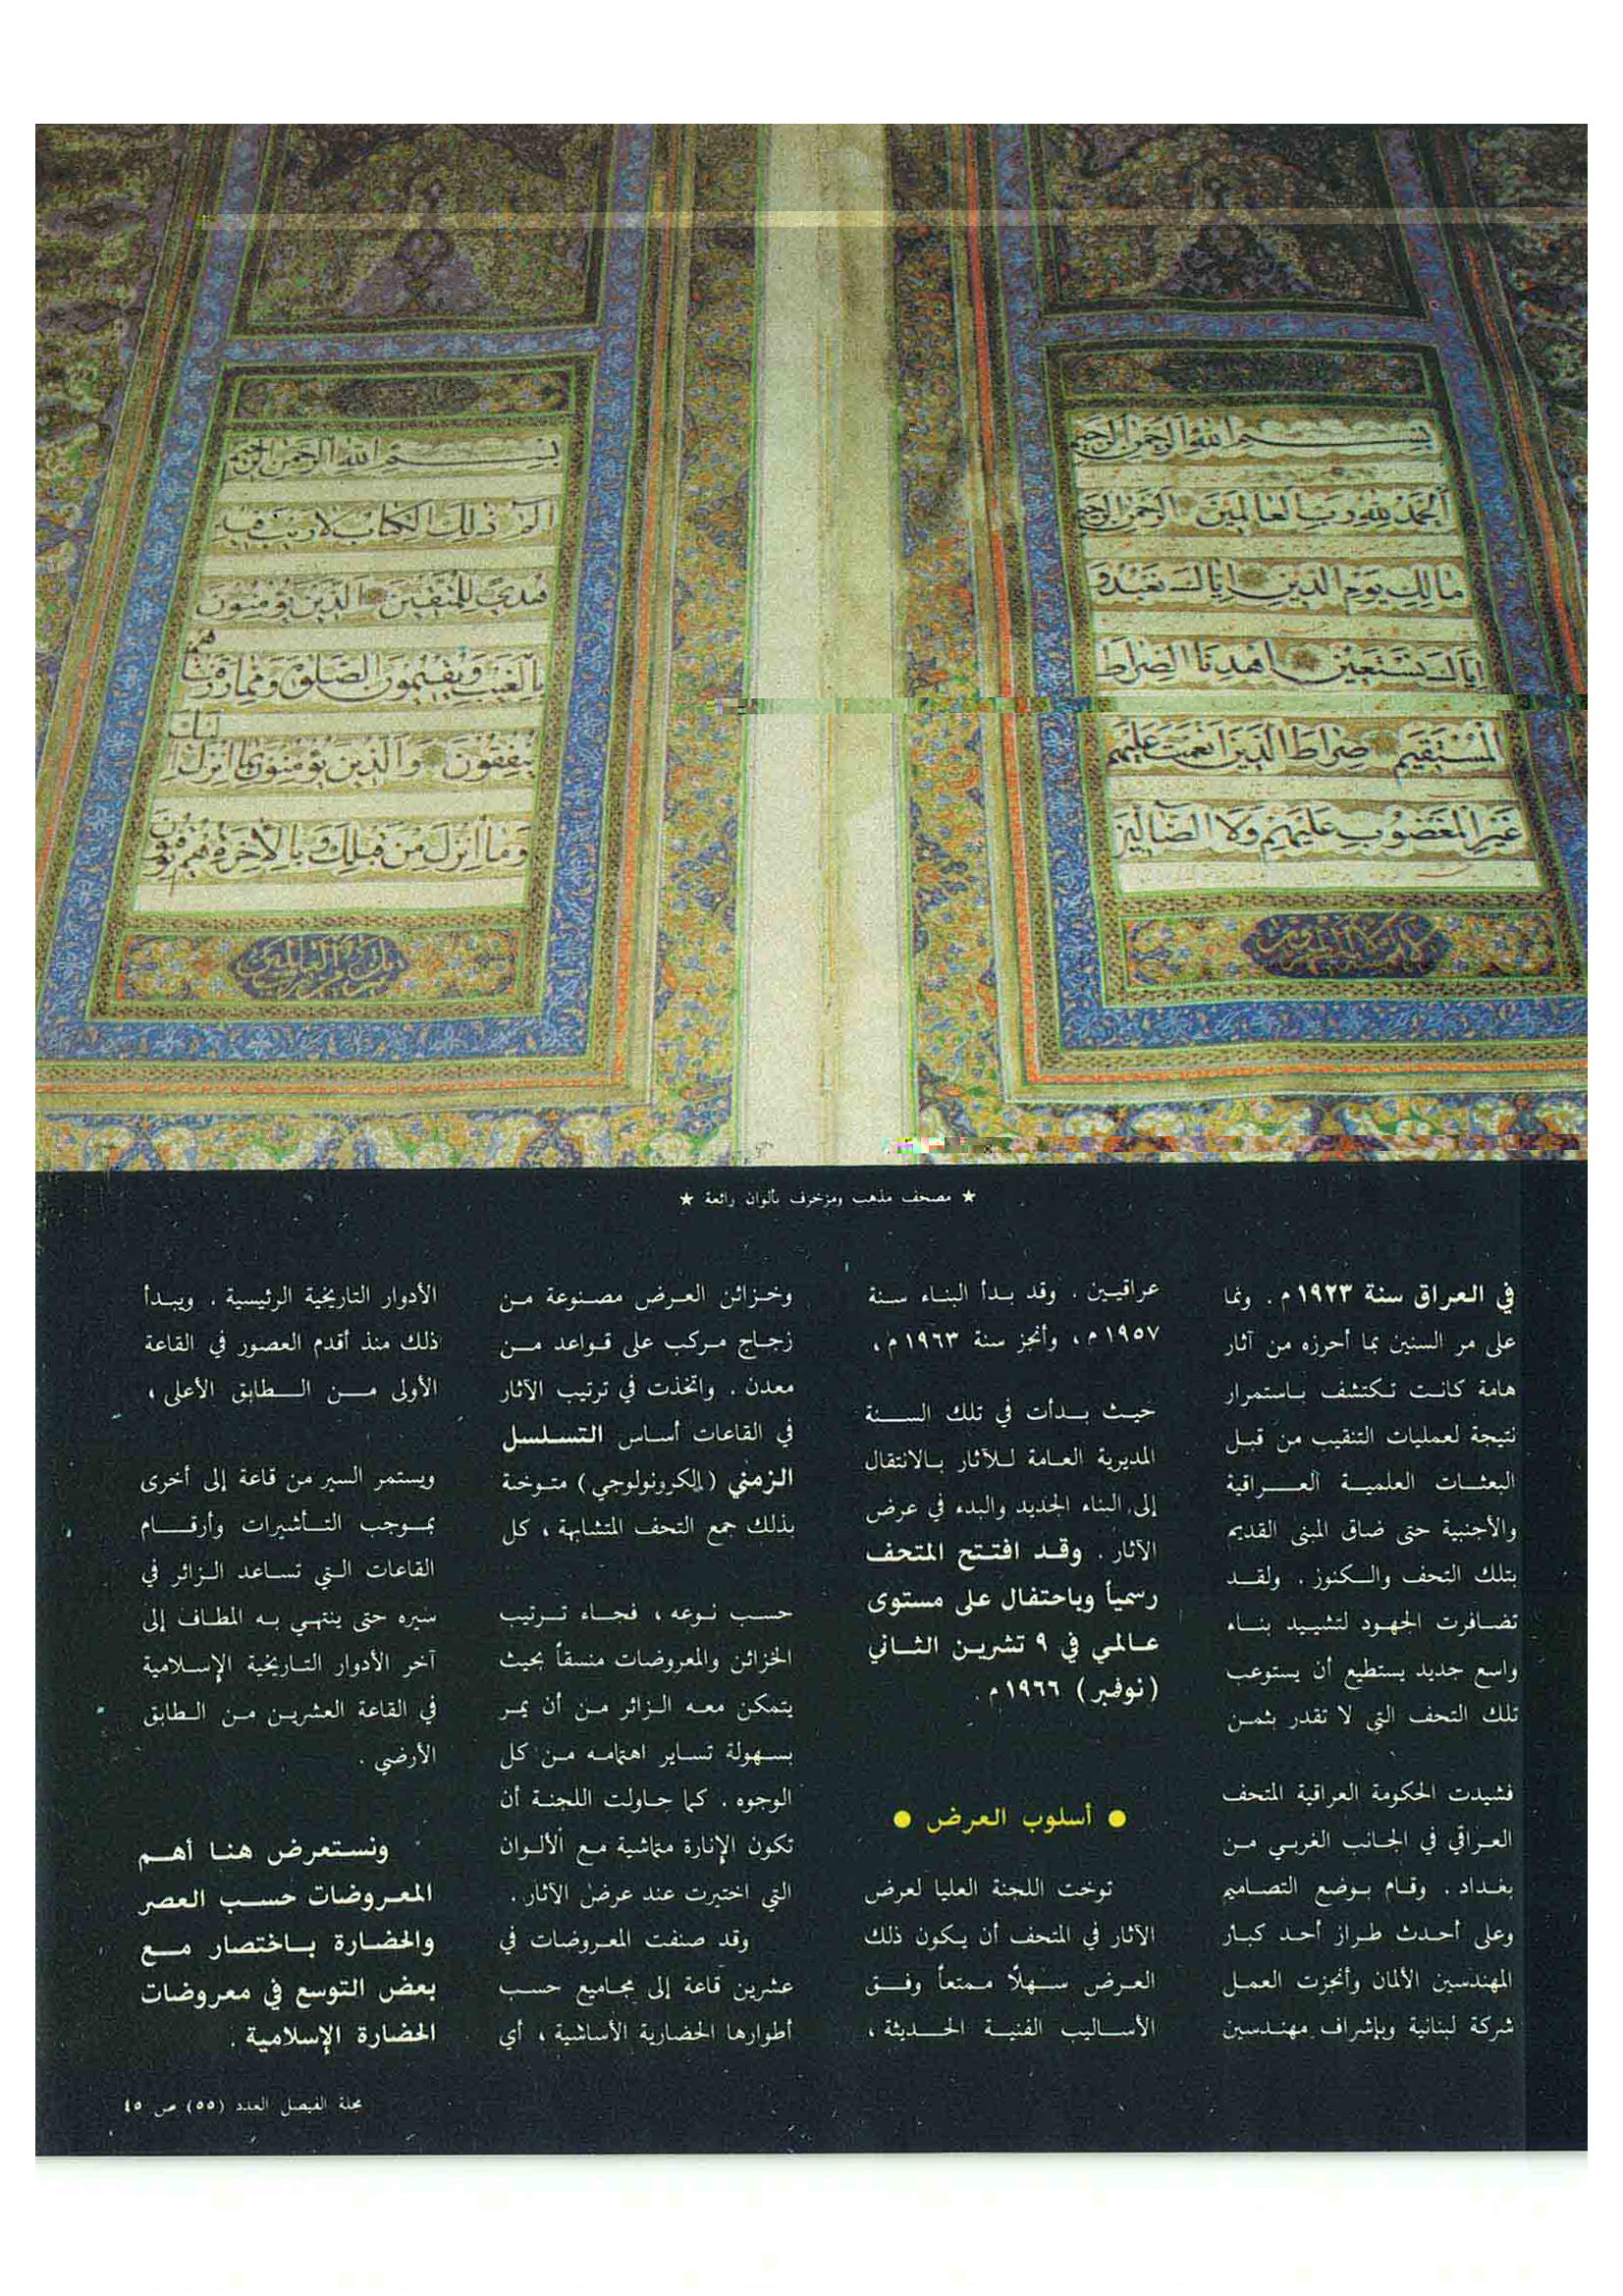 بسم الله الرحمن الرحيم
الحمد لله رب العالمين الرحمن الرحيم
مالك يوم الدين اياك نعبد و
اياك نستعين اهدنا الصراط
المستقيم صراط الذين انعمت عليهم
غير المغضوب عليهم ولا الضالين
بسم الله الرحمن الرحيم
الم ذلك الكتاب لاريب فيه
هدى للمتقين الذين يؤمنون
بالغيب ويقيمون الصلوة ومما رزقناهم
ينفقون والذين يؤمنون بما انزل اليك
وما انزل من قبلك وبالاخرة هم يوقنون
★ مصحف مذهب ومزخرف بألوان رائعة ★
في العراق سنة ١٩٢٣م . ونما
على مر السنين بما أحرزه من آثار
هامة كانت تكتشف باستمرار
نتيجة لعمليات التنقيب من قبل
البعثات العلمية العراقية
والأجنبية حتى ضاق المبنى القديم
بتلك التحف والكنوز . ولقد
تضافرت الجهود لتشييد بناء
واسع جديد يستطيع أن يستوعب
تلك التحف التي لا تقدر بثمن
فشيدت الحكومة العراقية المتحف
العراقي في الجانب الغربي من
بغداد . وقام بوضع التصاميم
وعلى أحدث طراز أحد كبار
المهندسين الألمان وأنجزت العمل
شركة لبنانية وبإشراف مهندسين
عراقيين . وقد بدأ البناء سنة
١٩٥٧م ، وأنجز سنة ١٩٦٣م ،
حيث بدأت في تلك السنة
المديرية العامة للآثار بالانتقال
إلى البناء الجديد والبدء في عرض
الآثار . وقد افتتح المتحف
رسمياً وباحتفال على مستوى
عالمي في ٩ تشرين الثاني
(نوفمبر) ١٩٦٦م .
● أسلوب العرض ●
توخت اللجنة العليا لعرض
الآثار في المتحف أن يكون ذلك
العرض سهلًا ممتعاً وفق
الأساليب الفنية الحديثة ،
وخزائن العرض مصنوعة من
زجاج مركب على قواعد من
معدن . واتخذت في ترتيب الآثار
في القاعات أساس التسلسل
الزمني (الكرونولوجي) متوخية
بذلك جمع التحف المتشابهة ، كل
حسب نوعه ، فجاء ترتيب
الخزائن والمعروضات منسقاً بحيث
يتمكن معه الزائر من أن يمر
بسهولة تساير اهتمامه من كل
الوجوه . كما حاولت اللجنة أن
تكون الإنارة متماشية مع الألوان
التي اختيرت عند عرض الآثار .
وقد صنفت المعروضات في
عشرين قاعة إلى مجاميع حسب
أطوارها الحضارية الأساسية ، أي
الأدوار التاريخية الرئيسية . ويبدأ
ذلك منذ أقدم العصور في القاعة
الأولى من الطابق الأعلى ،
ويستمر السير من قاعة إلى أخرى
بموجب التأشيرات وأرقام
القاعات التي تساعد الزائر في
سيره حتى ينتهي به المطاف إلى
آخر الأدوار التاريخية الإسلامية
في القاعة العشرين من الطابق
الأرضي .
ونستعرض هنا أهم
المعروضات حسب العصر
والحضارة باختصار مع
بعض التوسع في معروضات
الحضارة الإسلامية .
مجلة الفيصل العدد (٥٥) ص ٤٥